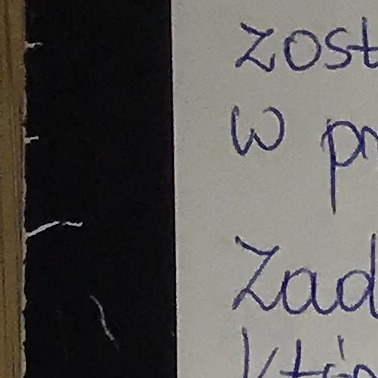 zost
w pr
Zad
któr